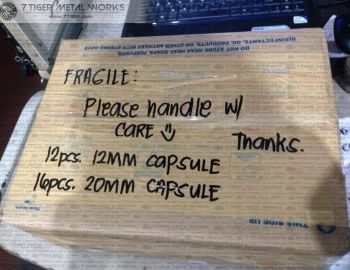 7TIGER METAL WORKS
DISINFECTANTS, OIL PRODUCTS OR OTHER ARTICLES WITH STRONG ODOR
DO NOT STORE NEAR MEAT, SOAPS, PERFUMES,
FRAGILE:
Please handle w/
CARE
Thanks.
12pcs. 12MM CAPSULE
16pcs. 20MM CAPSULE
THIS SIDE UP